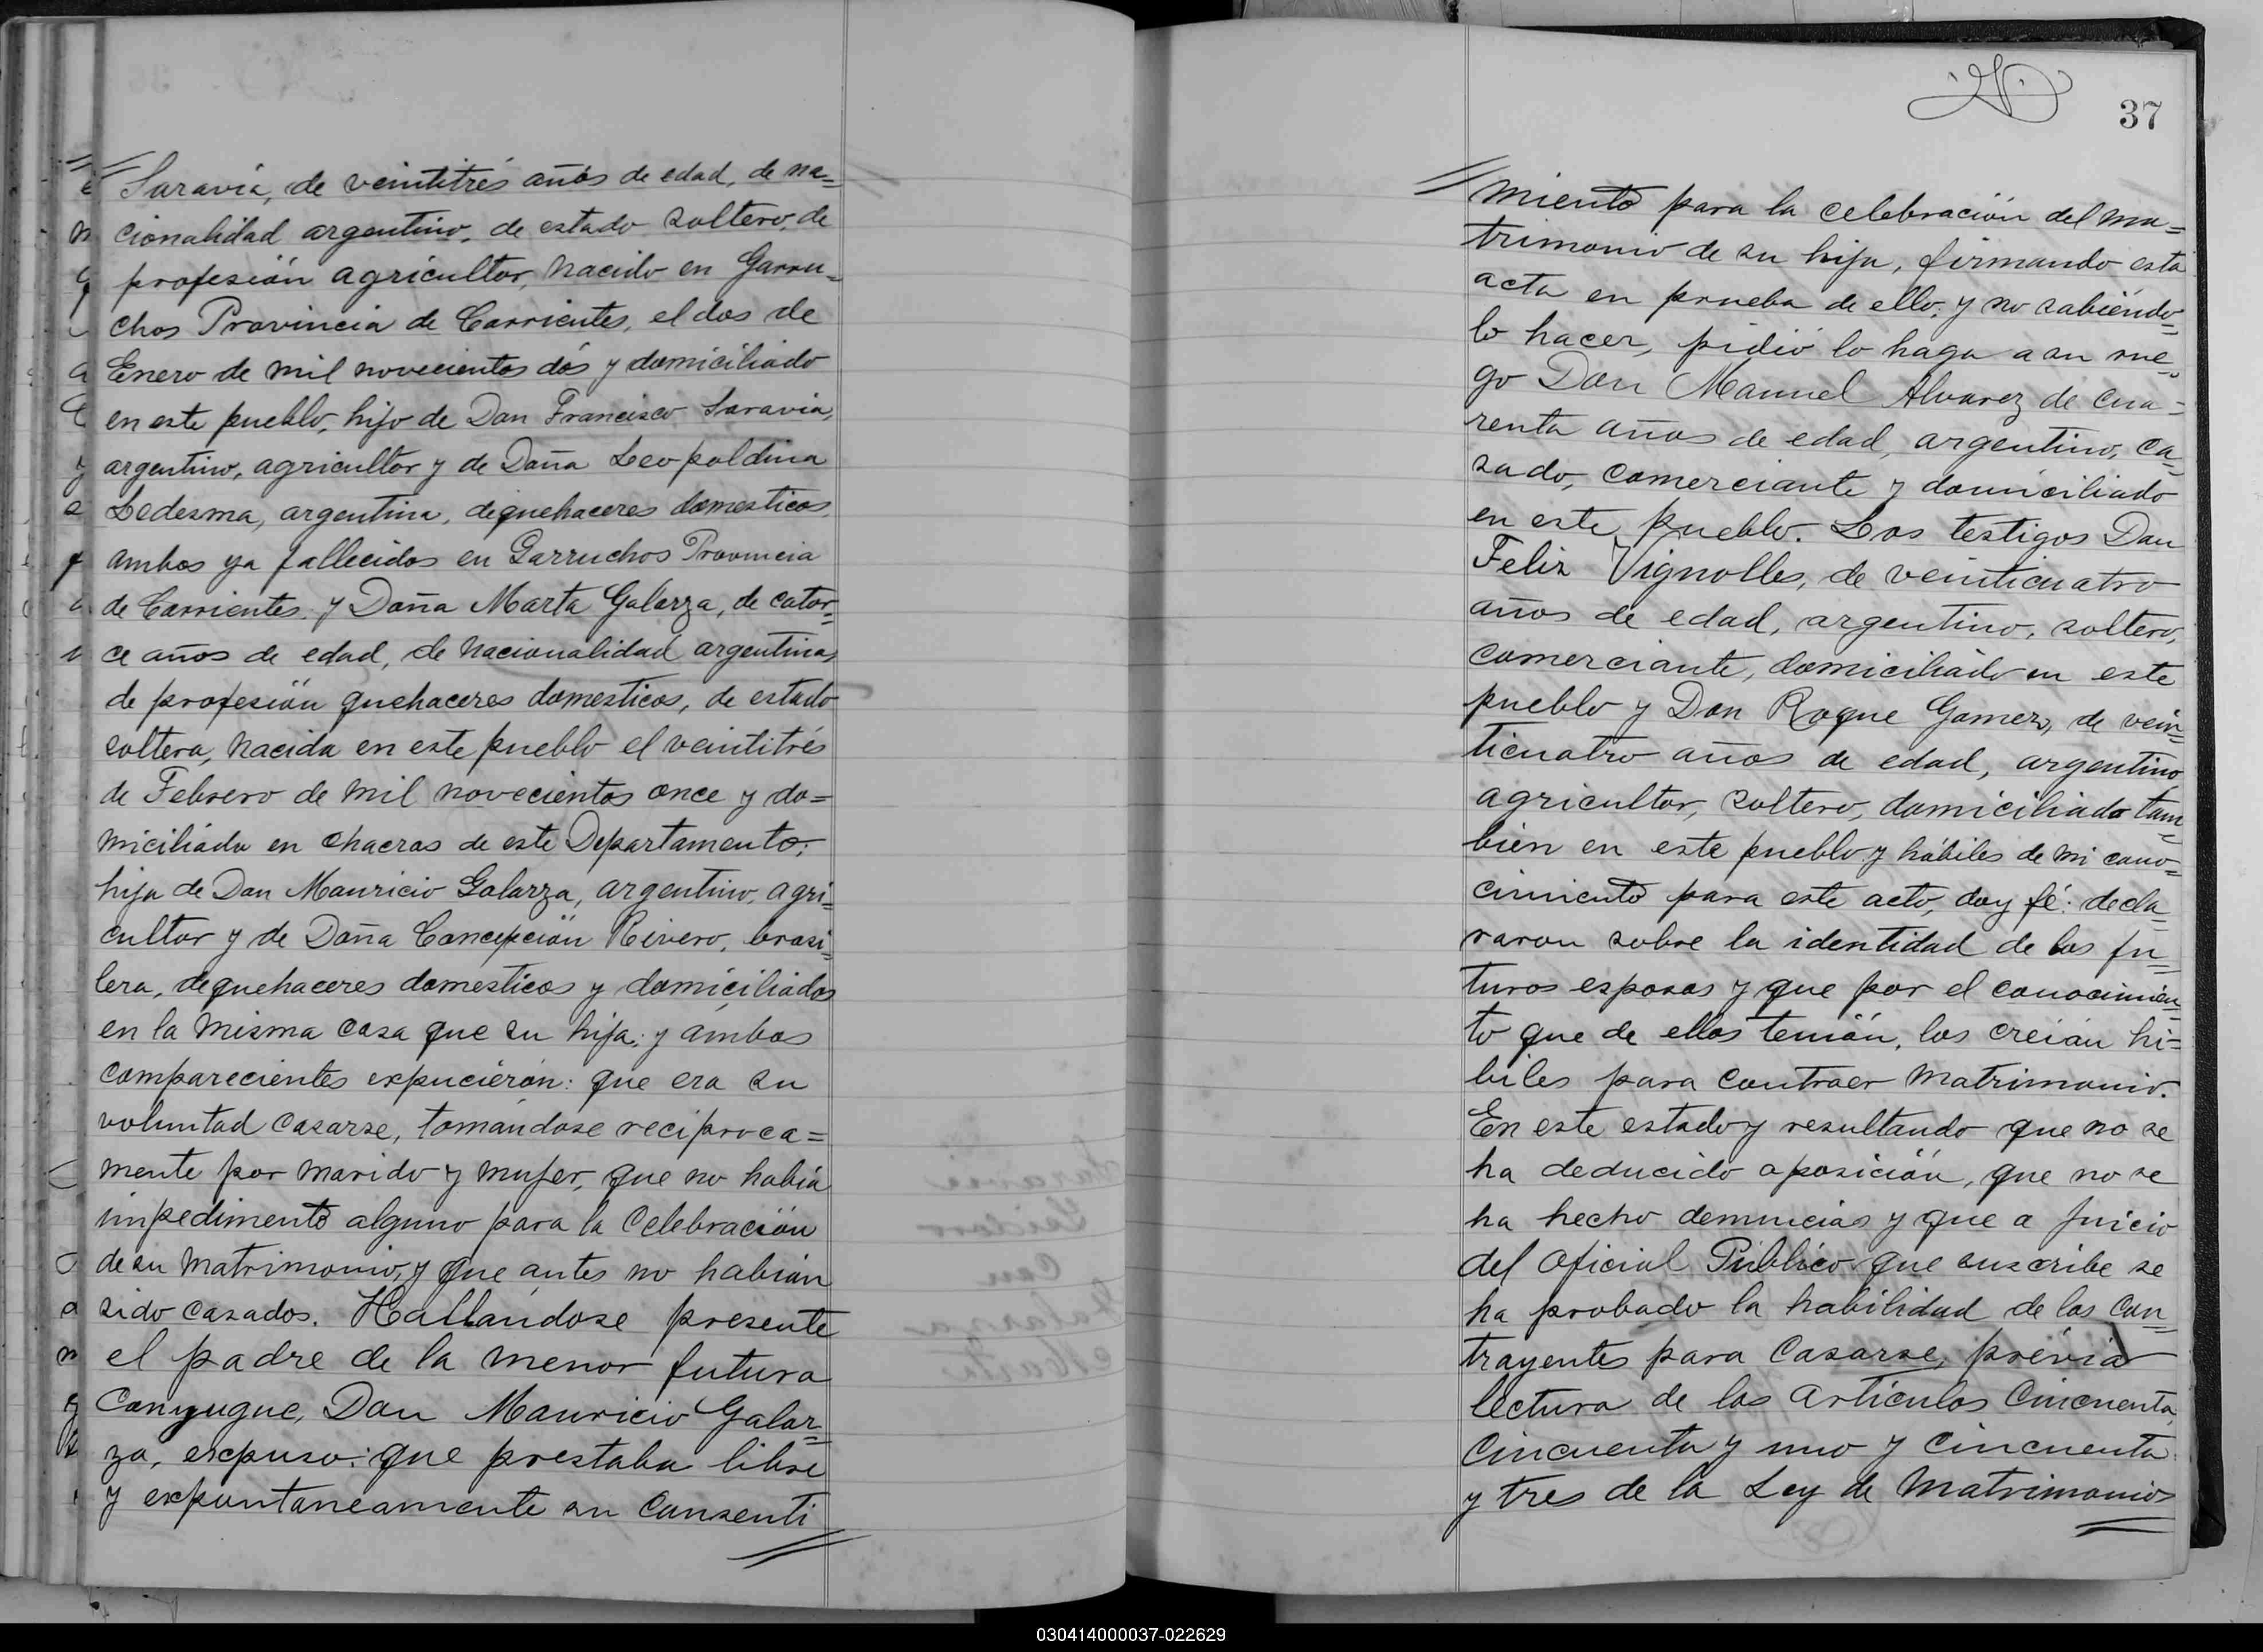 Saravia, de veintitrés años de edad, de na=
cionalidad argentino, de estado soltero, de
profesión agricultor, nacido en Garru=
chos Provincia de Corrientes, el dos de
Enero de mil novecientos dos y domiciliado
en este pueblo, hijo de Don Francisco Saravia,
argentino, agricultor y de Doña Leopoldina
Ledesma, argentina, de quehaceres domesticos,
ambos ya fallecidos en Garruchos Provincia
de Corrientes. y Doña Marta Galarza, de cator=
ce años de edad, de nacionalidad argentina,
de profesión quehaceres domesticos, de estado
soltera, nacida en este pueblo el veintitrés
de Febrero de mil novecientos once y do=
miciliada en chacras de este Departamento;
hija de Don Mauricio Galarza, argentino, agri=
cultor y de Doña Concepción Rivero, brasi=
lera, de quehaceres domesticos y domiciliados
en la misma casa que su hija; y ámbos
comparecientes expuciéron: que era su
voluntad casarse, tomándose reciproca=
mente por marido y mujer, que no había
impedimento alguno para la Celebración
de su matrimonio, y que antes no habían
sido casados. Hallándose presente
el padre de la menor futura
Conyugue, Don Mauricio Galar=
za, expuso: que prestaba libre
y expontaneamente su Consenti
37
miento para la celebración del ma=
trimonio de su hija, firmando esta
acta en prueba de ello; y no sabiéndo=
lo hacer, pidió lo haga a su rue=
go Don Manuel Alvarez de cua=
renta años de edad, argentino, ca=
sado, comerciante y domiciliado
en este pueblo. Los testigos Don
Felix Vignolles, de veinticuatro
años de edad, argentino, soltero,
comerciante, domiciliado en este
pueblo y Don Roque Gomez, de vein=
ticuatro años de edad, argentino
agricultor, soltero, domiciliado tam=
bién en este pueblo y hábiles de mi cono=
cimiento para este acto, doy fé: decla=
raron sobre la identidad de los fu=
turos esposos y que por el conocimien=
to que de ellos tenián, los creián hi=
biles para contraer matrimonio.
En este estado y resultando que no se
ha deducido oposición, que no se
ha hecho denuncias y que a juicio
del Oficial Público que suscribe se
ha probado la habilidad de los Con=
trayentes para Casarse, prévia
lectura de los artículos Cincuenta,
Cincuenta y uno y Cincuenta
y tres de la Ley de Matrimonio
030414000037-022629